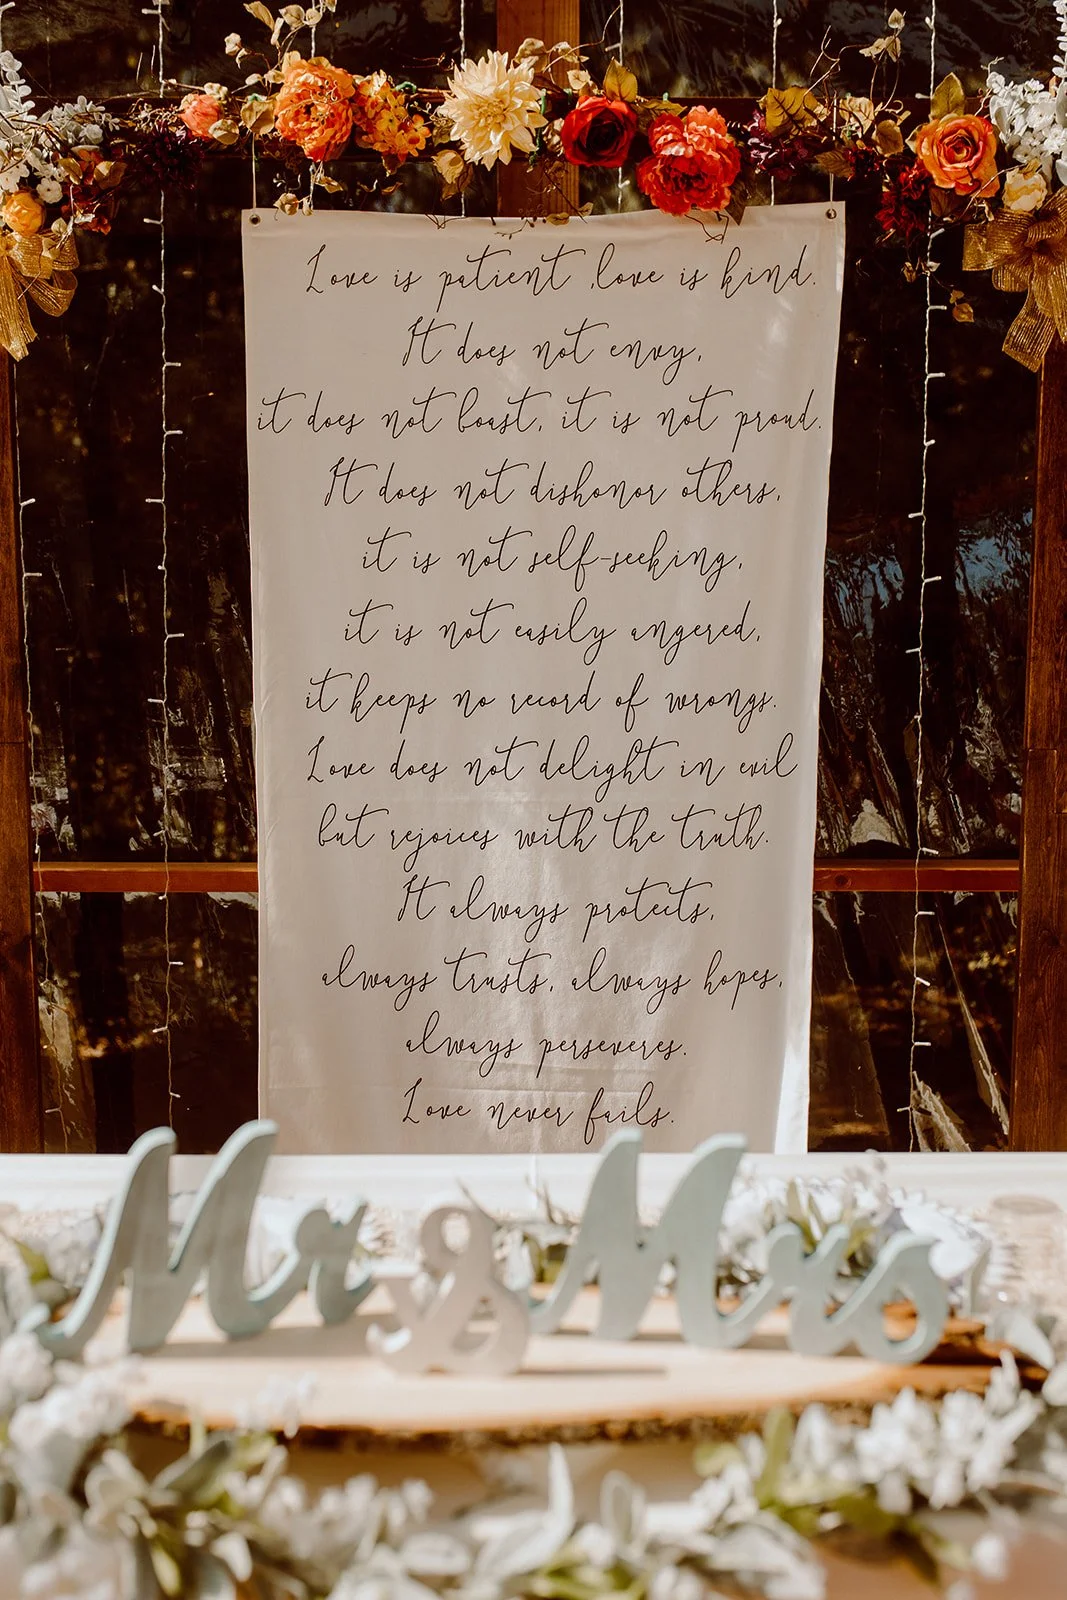 Love is patient ,love is kind.
It does not envy,
it does not boast, it is not proud.
It does not dishonor others,
it is not self-seeking,
it is not easily angered,
it keeps no record of wrongs.
Love does not delight in evil
but rejoices with the truth.
It always protects,
always trusts, always hopes,
always perseveres.
Love never fails.
Mr & Mrs